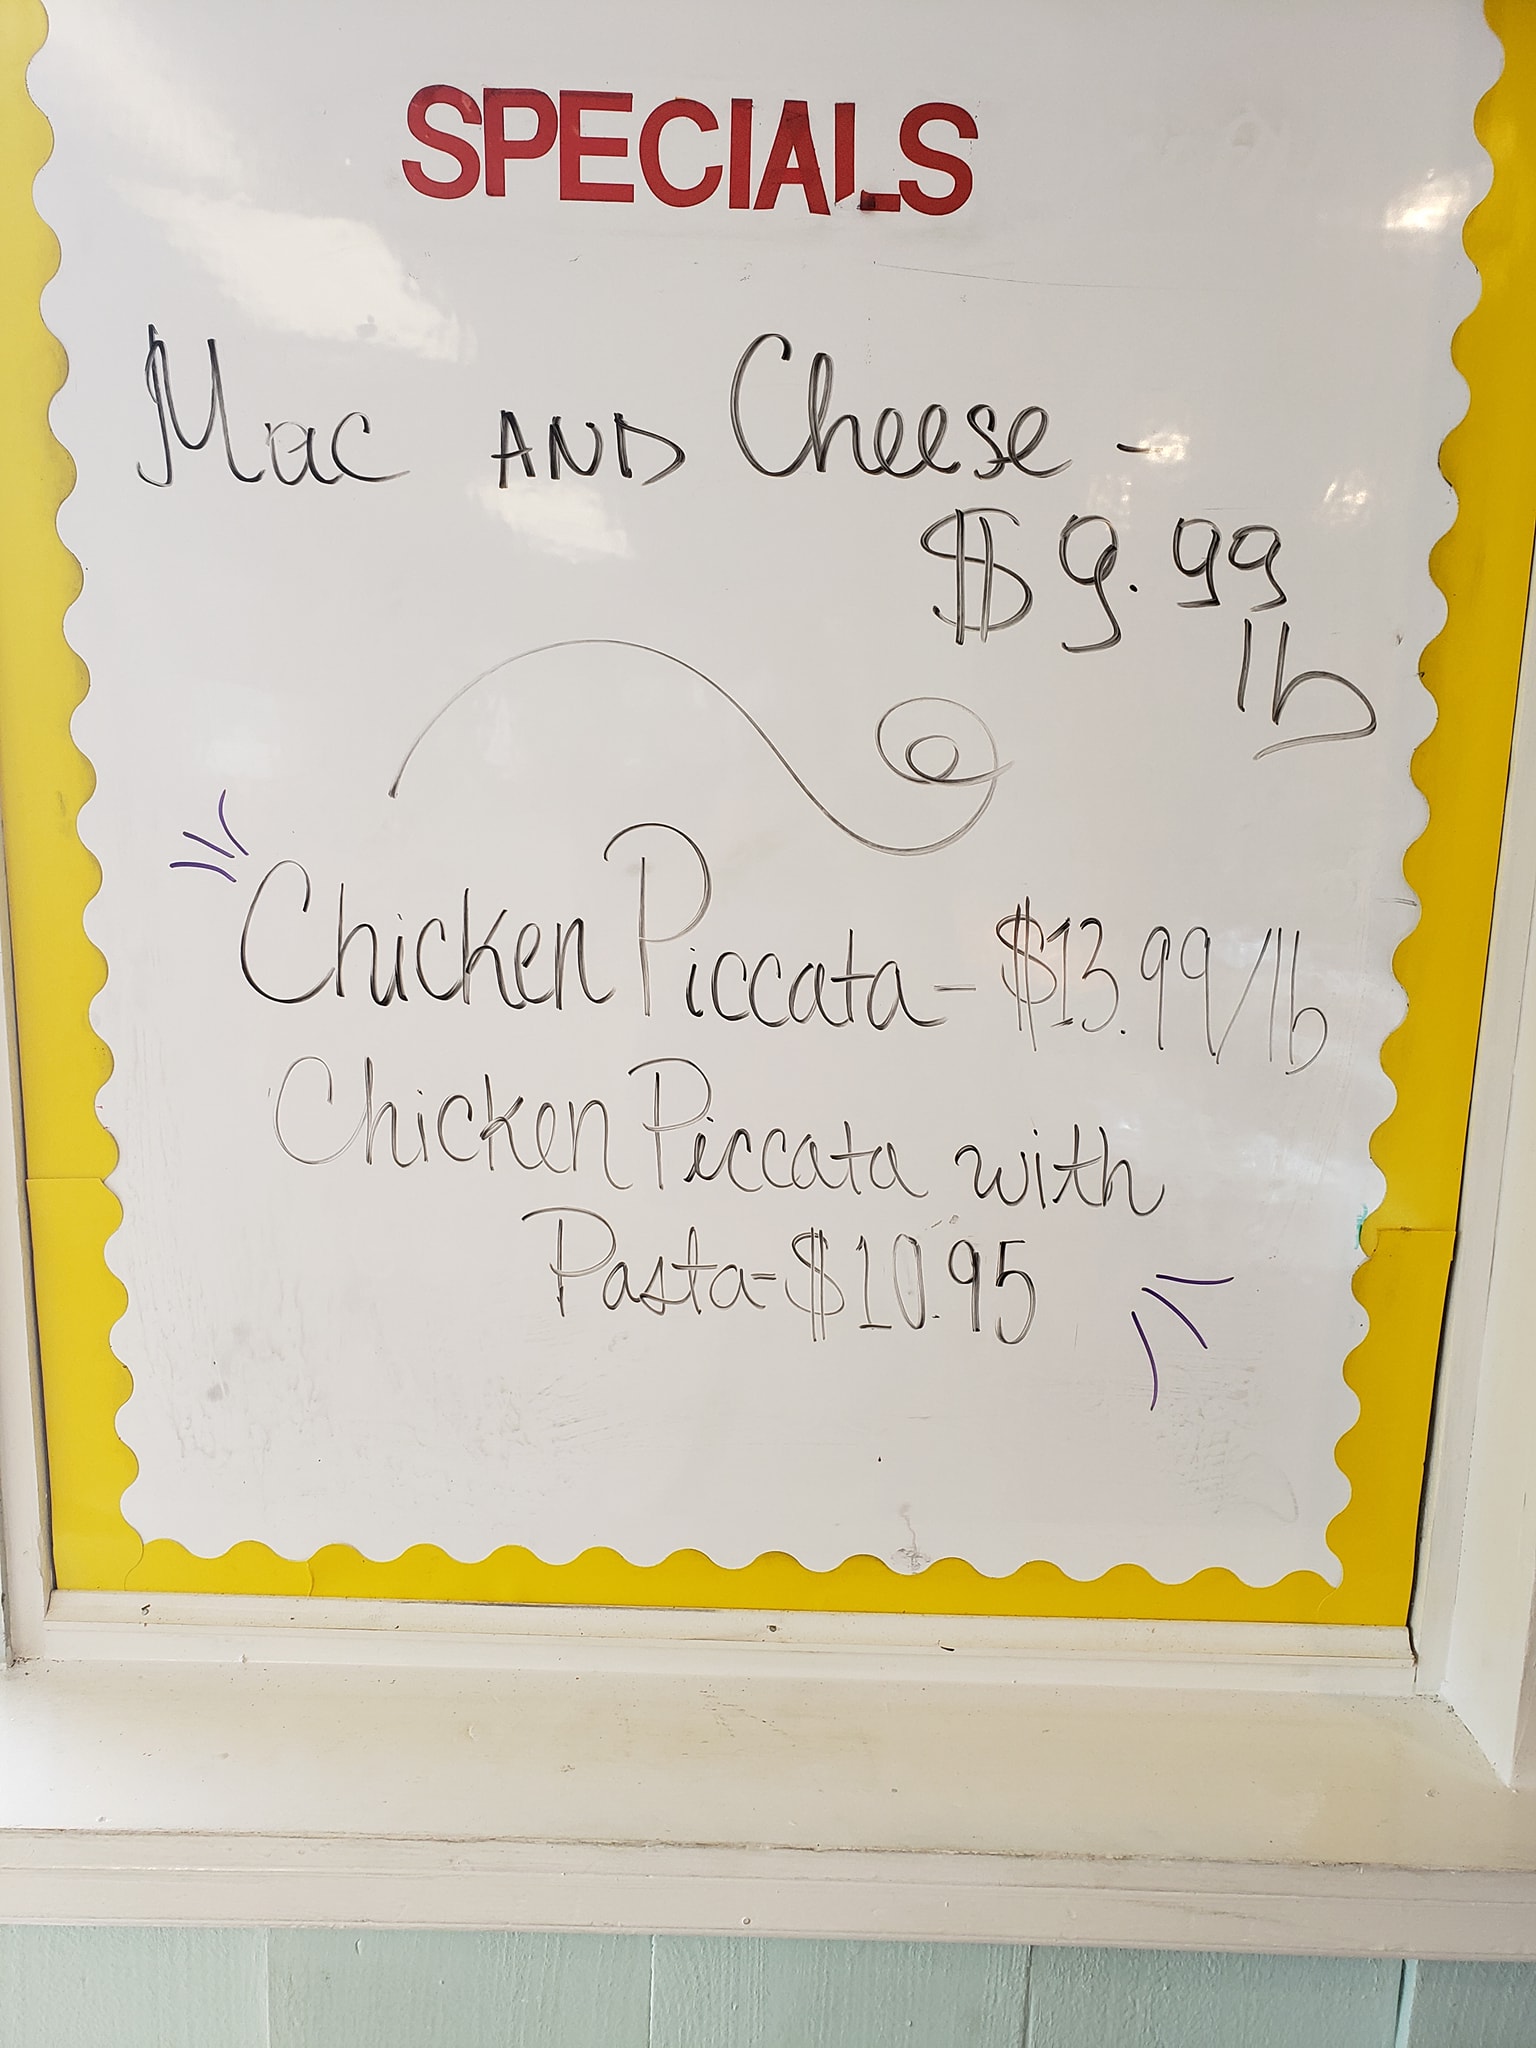 SPECIALS
Mac AND Cheese -
$9.99
lb
Chicken Piccata - $13.99/lb
Chicken Piccata with
Pasta - $10.95